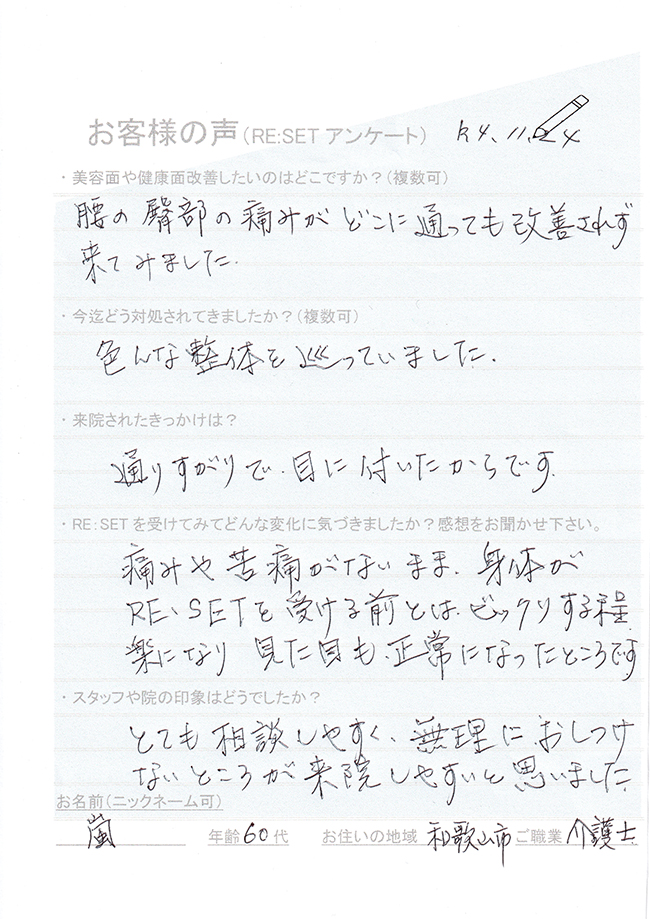 お客様の声(RE:SET アンケート) R4、11、24
・美容面や健康面改善したいのはどこですか？(複数可)
腰の臀部の痛みがどこに通っても改善されず
来てみました.
・今迄どう対処されてきましたか？(複数可)
色んな整体を巡っていました.
・来院されたきっかけは？
通りすがりで、目に付いたからです.
・RE:SETを受けてみてどんな変化に気づきましたか？感想をお聞かせ下さい。
痛みや苦痛がないまま、身体が
RE、SETを受ける前とは、ビックリする程
楽になり 見た目も、正常になったところです
・スタッフや院の印象はどうでしたか？
とても相談しやすく、無理に、おしつけ
ないところが来院しやすいと思いました
お名前(ニックネーム可)
嵐 年齢60代 お住いの地域 和歌山市 ご職業 介護士